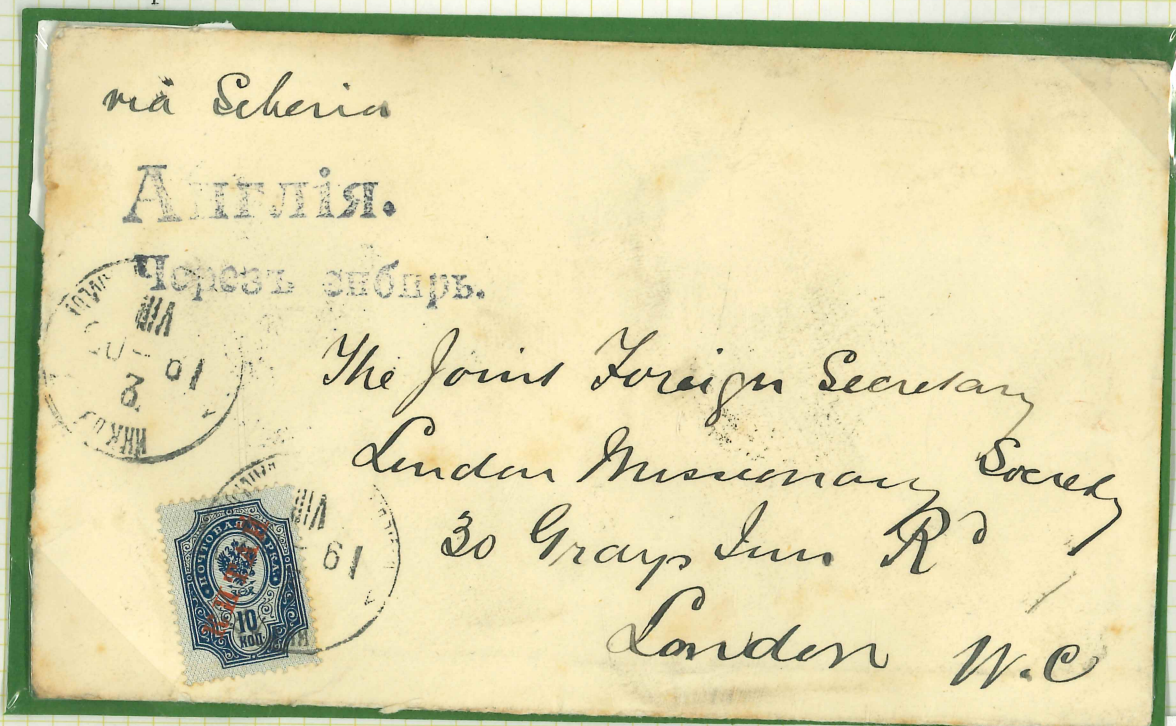 via Siberia
Англія.
Через сибирь.
VIII
19
2
ИНКОУ
The Joint Foreign Secretary
London Missionary Society
30 Grays Inn Rd
London W.C
VIII
19
ПОЧТОВАЯ МАРКА.
КИТАЙ
10
КОП.